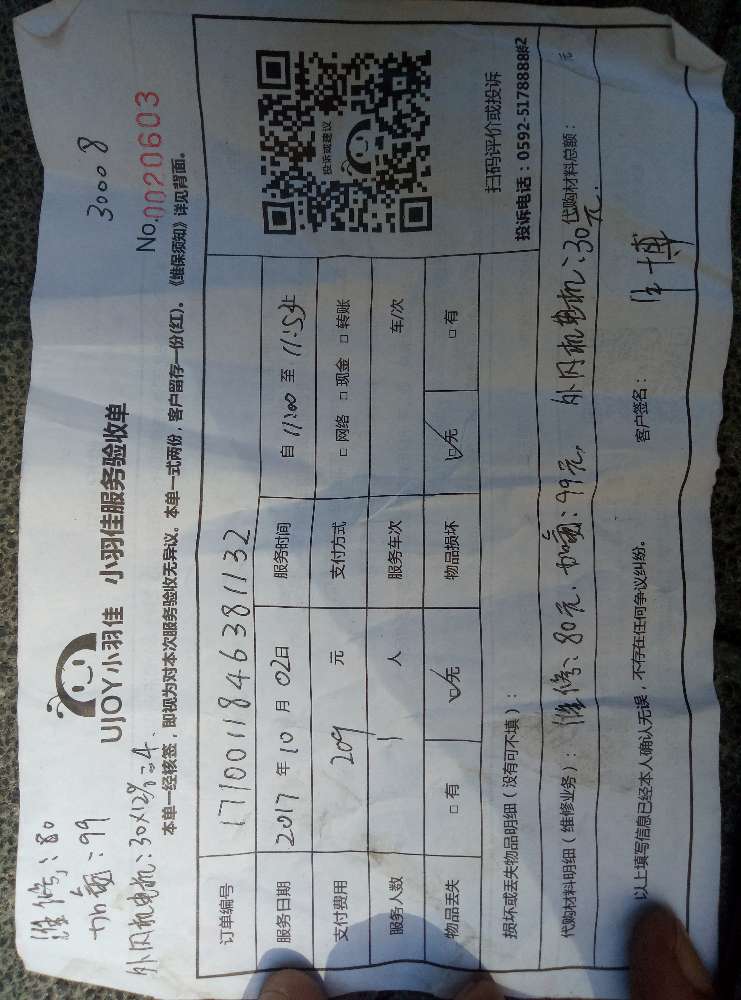 维修:80
加氟:99
外风机电机:30×12%=4
30008
UJOY小羽佳 小羽佳服务验收单
No.0020603
本单一经核签,即视为对本次服务验收无异议。本单一式两份,客户留存一份(红)。《维保须知》详见背面。
订单编号 171001184638 1132
服务日期 2017年10月02日 服务时间 自11:00至11:53止
支付费用 209元 支付方式 □网络 □现金 □转账
服务人数 1人 服务车次 车/次
物品丢失 □有 ☑无 物品损坏 ☑无 □有
投诉或建议
扫码评价或投诉
投诉电话:0592-5178888#2
损坏或丢失物品明细(没有可不填):
代购材料明细(维修业务): 维修:80元,加氟:99元,外风机电机:30元. 代购材料总额: 元
以上填写信息已经本人确认无误,不存在任何争议纠纷。 客户签名: